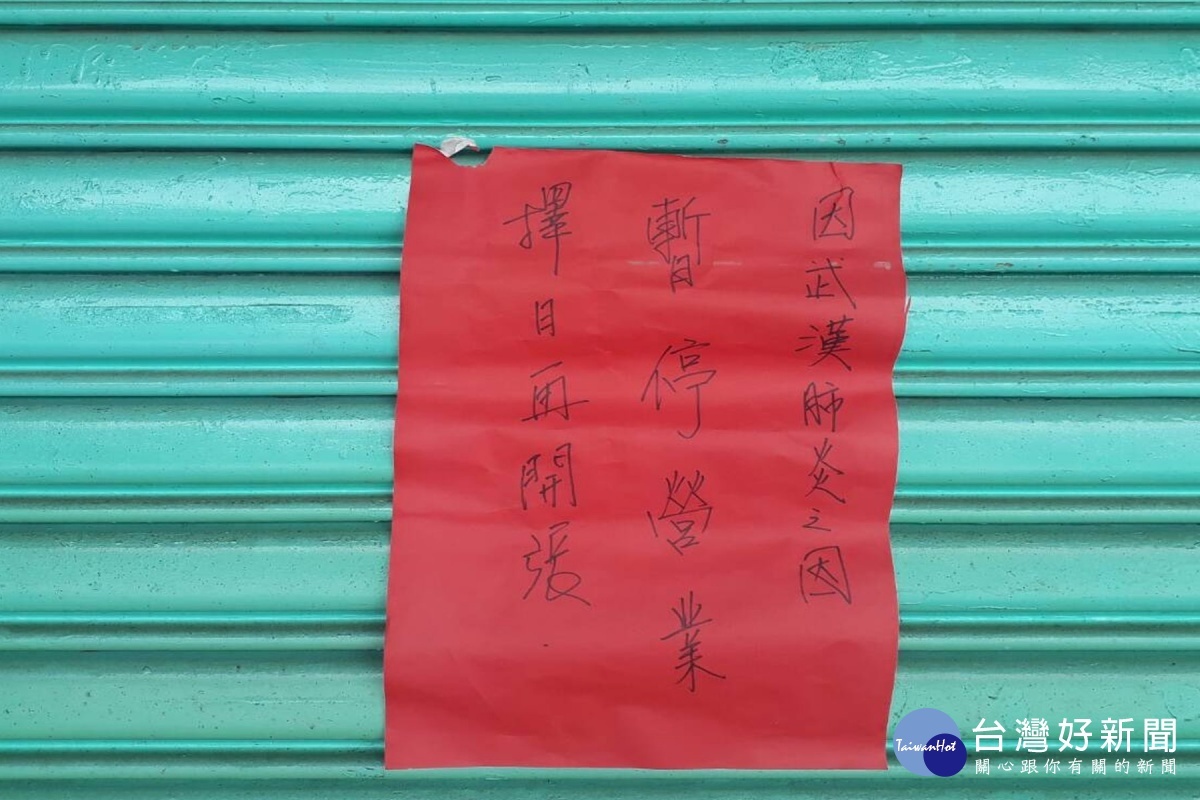 因武漢肺炎之因
暫停營業
擇日再開張
TaiwanHot
台灣好新聞
關心跟你有關的新聞